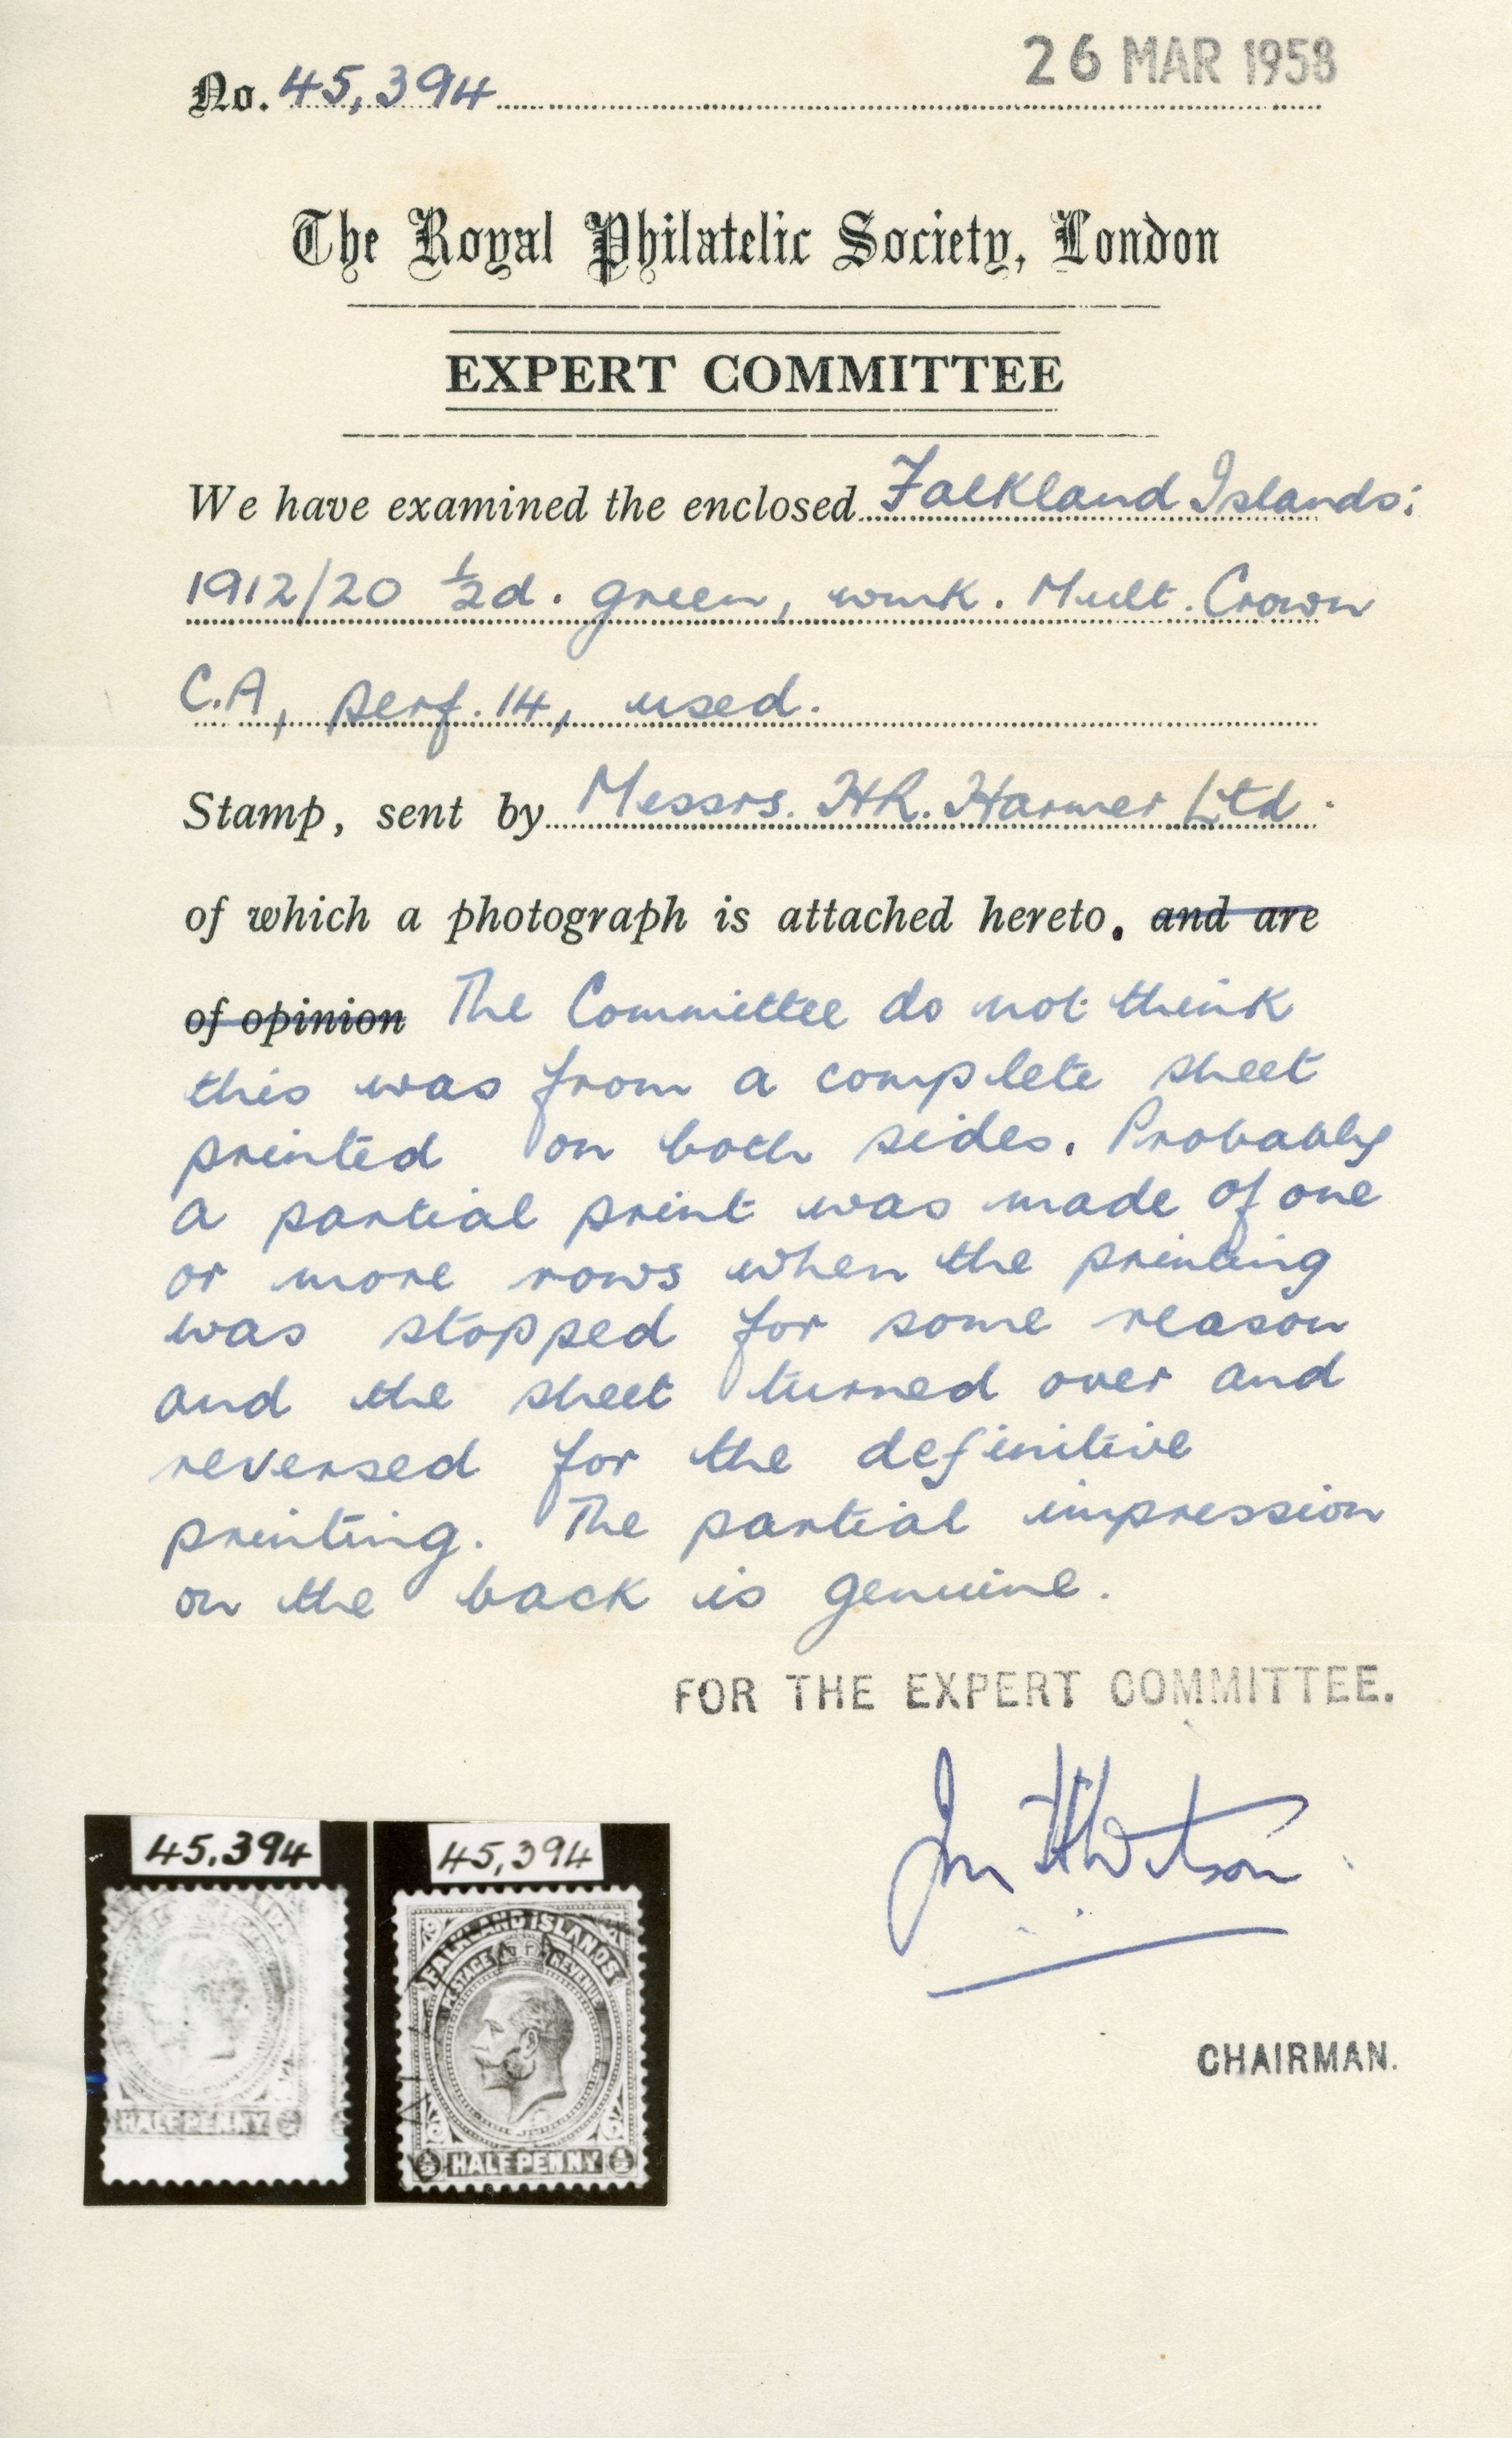 No. 45,394 26 MAR 1958
The Royal Philatelic Society, London
EXPERT COMMITTEE
We have examined the enclosed Falkland Islands:
1912/20 ½d. green, wmk. Mult. Crown
C.A, perf. 14, used.
Stamp, sent by Messrs. H.R. Harmer Ltd.
of which a photograph is attached hereto. and are
of opinion The Committee do not think
this was from a complete sheet
printed on both sides. Probably
a partial print was made of one
or more rows when the printing
was stopped for some reason
and the sheet turned over and
reversed for the definitive
printing. The partial impression
on the back is genuine.
FOR THE EXPERT COMMITTEE.
CHAIRMAN.
45,394 45,394
FALKLAND ISLANDS
POSTAGE REVENUE
HALFPENNY ½
½ HALFPENNY ½